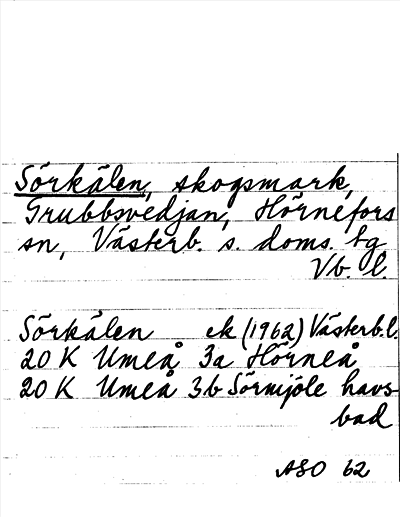 Sörkälen, skogsmark,
Grubbsvedjan, Hörnefors
sn, Västerb. s. doms. tg
Vb. l.
Sörkälen ek (1962) Västerb.l.
20 K Umeå 3a Hörneå
20 K Umeå 3b Sörmjöle havs-
bad
ASO 62